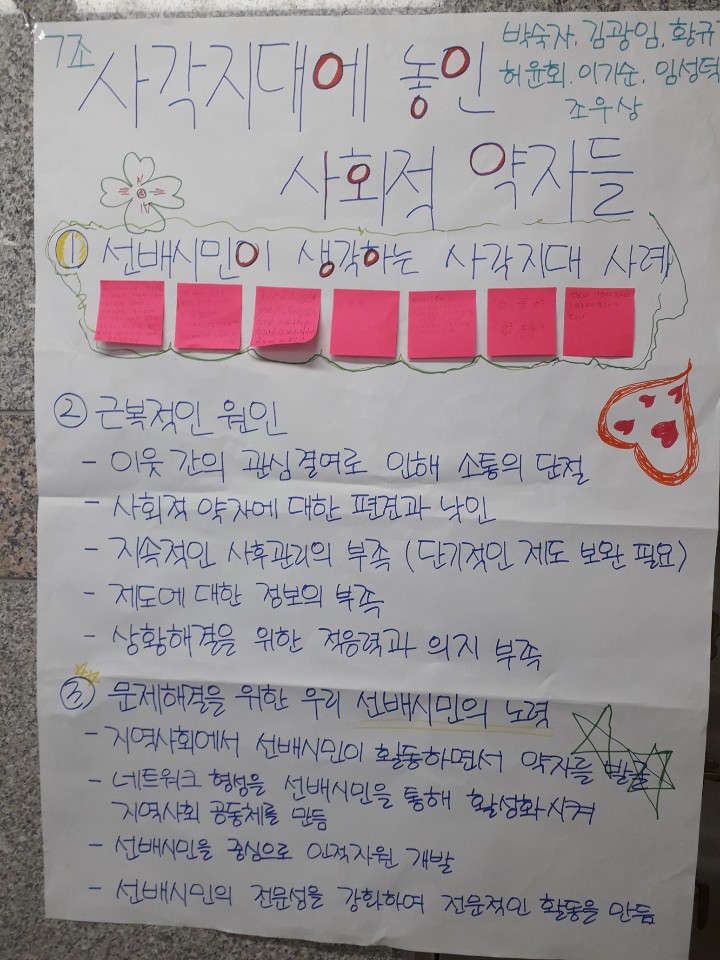 7조
박숙자, 김광임, 황규
허윤회, 이기순, 임성덕
조우상
사각지대에 놓인
사회적 약자들
① 선배시민이 생각하는 사각지대 사례
② 근복적인 원인
- 이웃 간의 관심결여로 인해 소통의 단절
- 사회적 약자에 대한 편견과 낫인
- 지속적인 사후관리의 부족 (단기적인 제도 보완 필요)
- 제도에 대한 정보의 부족
- 상황해결을 위한 적응력과 의지 부족
③ 문제해결을 위한 우리 선배시민의 노력
- 지역사회에서 선배시민이 활동하면서 약자를 발굴
- 네트워크 형성을 선배시민을 통해 활성화시켜
지역사회 공동체를 만듬
- 선배시민을 중심으로 인적자원 개발
- 선배시민의 전문성을 강화하여 전문적인 활동을 만듬